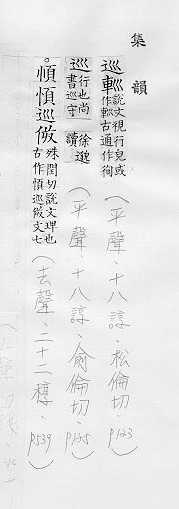 集韻
巡 說文視行皃或
作 古通作徇
(平聲、十八諄、松倫切、P123)
巡 行也尚
書巡守 徐邈
讀
(平聲、十八諄、俞倫切、P125)
巡 殊閏切說文理也
古作 巡 文七
(去聲、二十二稕、P539)